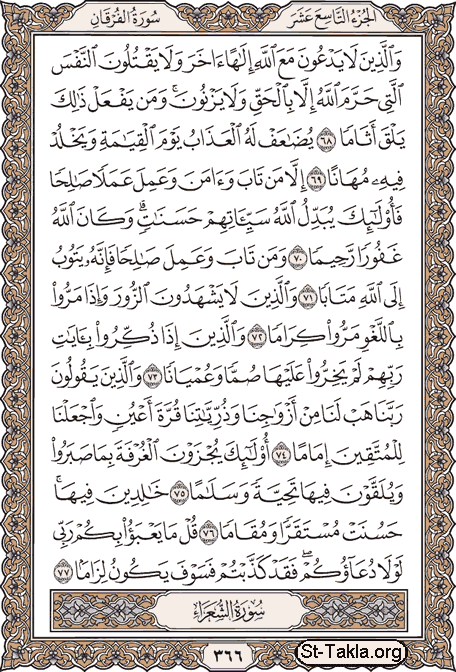 الجزء التاسع عشر
سورة الفرقان
وَٱلَّذِينَ لَا يَدْعُونَ مَعَ ٱللَّهِ إِلَٰهًا ءَاخَرَ وَلَا يَقْتُلُونَ ٱلنَّفْسَ
ٱلَّتِى حَرَّمَ ٱللَّهُ إِلَّا بِٱلْحَقِّ وَلَا يَزْنُونَ ۚ وَمَن يَفْعَلْ ذَٰلِكَ
يَلْقَ أَثَامًا ٦٨ يُضَٰعَفْ لَهُ ٱلْعَذَابُ يَوْمَ ٱلْقِيَٰمَةِ وَيَخْلُدْ
فِيهِۦ مُهَانًا ٦٩ إِلَّا مَن تَابَ وَءَامَنَ وَعَمِلَ عَمَلًا صَٰلِحًا
فَأُو۟لَٰٓئِكَ يُبَدِّلُ ٱللَّهُ سَيِّـَٔاتِهِمْ حَسَنَٰتٍ ۗ وَكَانَ ٱللَّهُ
غَفُورًا رَّحِيمًا ٧٠ وَمَن تَابَ وَعَمِلَ صَٰلِحًا فَإِنَّهُۥ يَتُوبُ
إِلَى ٱللَّهِ مَتَابًا ٧١ وَٱلَّذِينَ لَا يَشْهَدُونَ ٱلزُّورَ وَإِذَا مَرُّوا۟
بِٱللَّغْوِ مَرُّوا۟ كِرَامًا ٧٢ وَٱلَّذِينَ إِذَا ذُكِّرُوا۟ بِـَٔايَٰتِ
رَبِّهِمْ لَمْ يَخِرُّوا۟ عَلَيْهَا صُمًّا وَعُمْيَانًا ٧٣ وَٱلَّذِينَ يَقُولُونَ
رَبَّنَا هَبْ لَنَا مِنْ أَزْوَٰجِنَا وَذُرِّيَّٰتِنَا قُرَّةَ أَعْيُنٍ وَٱجْعَلْنَا
لِلْمُتَّقِينَ إِمَامًا ٧٤ أُو۟لَٰٓئِكَ يُجْزَوْنَ ٱلْغُرْفَةَ بِمَا صَبَرُوا۟
وَيُلَقَّوْنَ فِيهَا تَحِيَّةً وَسَلَٰمًا ٧٥ خَٰلِدِينَ فِيهَا ۚ
حَسُنَتْ مُسْتَقَرًّا وَمُقَامًا ٧٦ قُلْ مَا يَعْبَؤُا۟ بِكُمْ رَبِّى
لَوْلَا دُعَآؤُكُمْ ۖ فَقَدْ كَذَّبْتُمْ فَسَوْفَ يَكُونُ لِزَامًۢا ٧٧
سورة الشعراء
٣٦٦
St-Takla.org